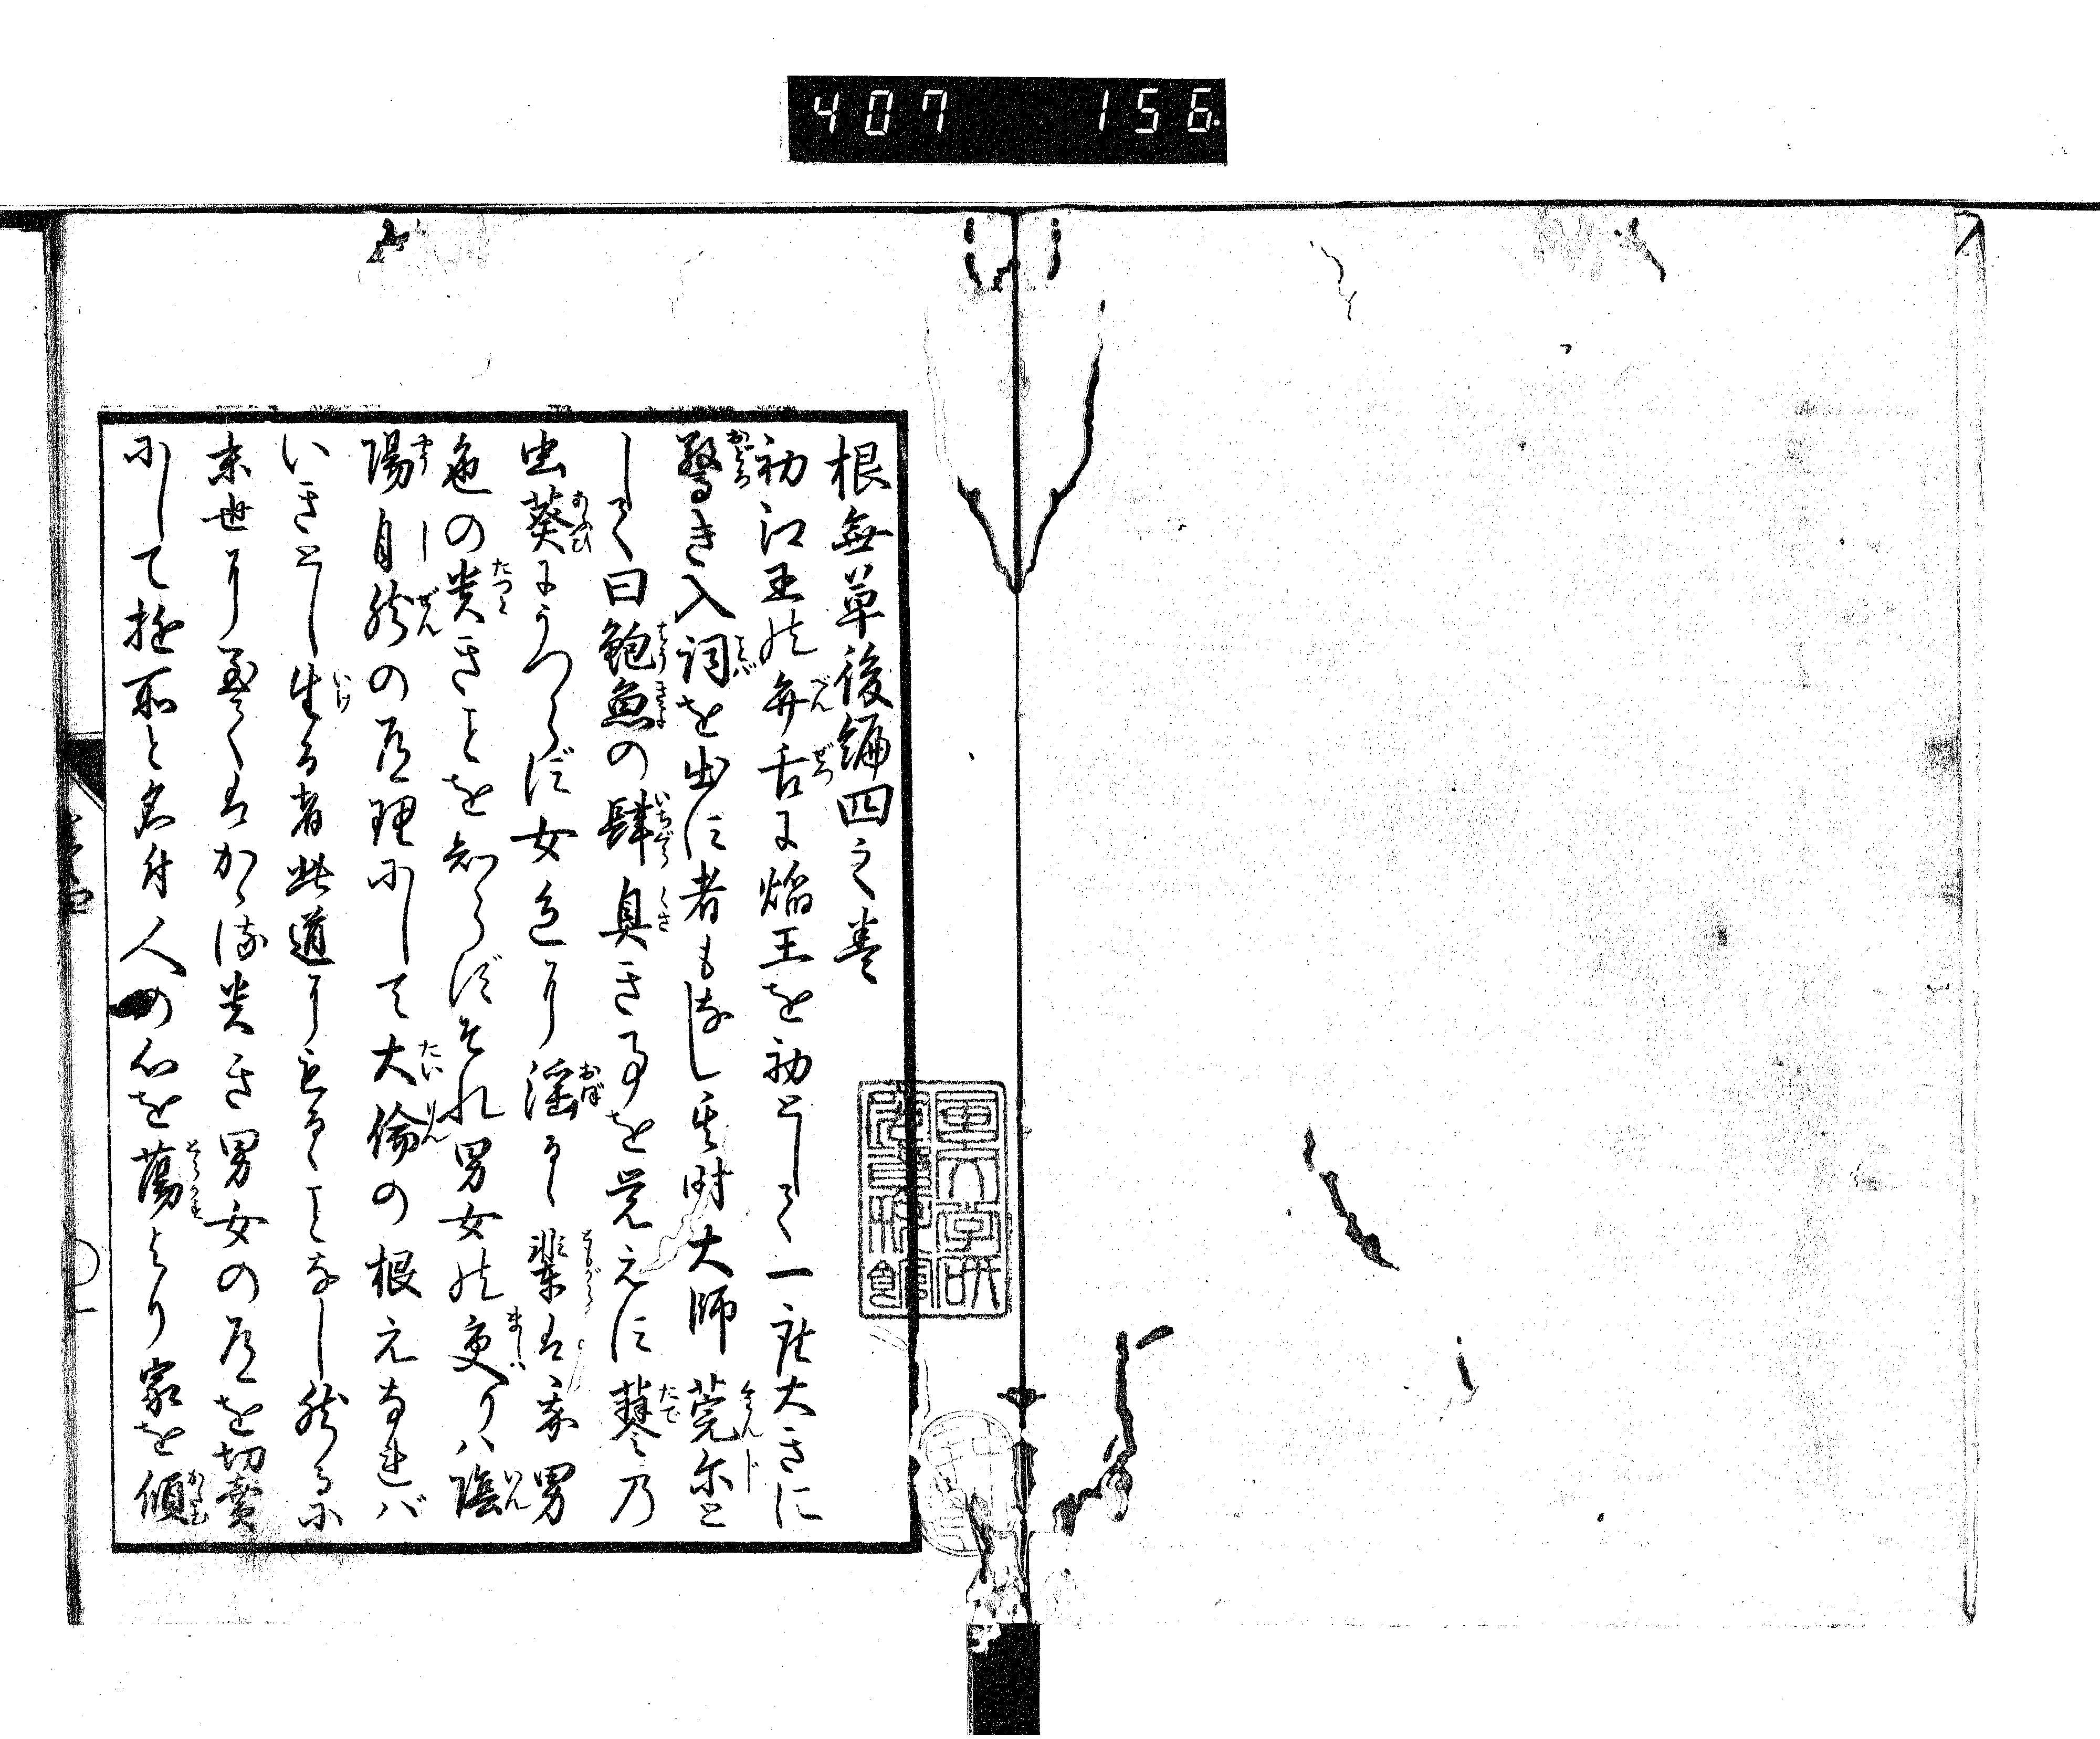 407 156
根無草後編四之巻
初江王の弁舌に焔王を初として一座大きに
驚き入詞を出す者もなし其時大師莞尓と
して曰鮑魚の肆臭き事を覚えず蓼乃
虫葵にうつらず女色に淫るゝ輩は男
色の貴きことを知らずそれ男女の交りハ陰
陽自然の道理にして大倫の根元なれバ
いきとし生る者此道によることなし然るに
末世に至ては貴き男女の道を切売
にして遊所と名付人の心を蕩より家を傾